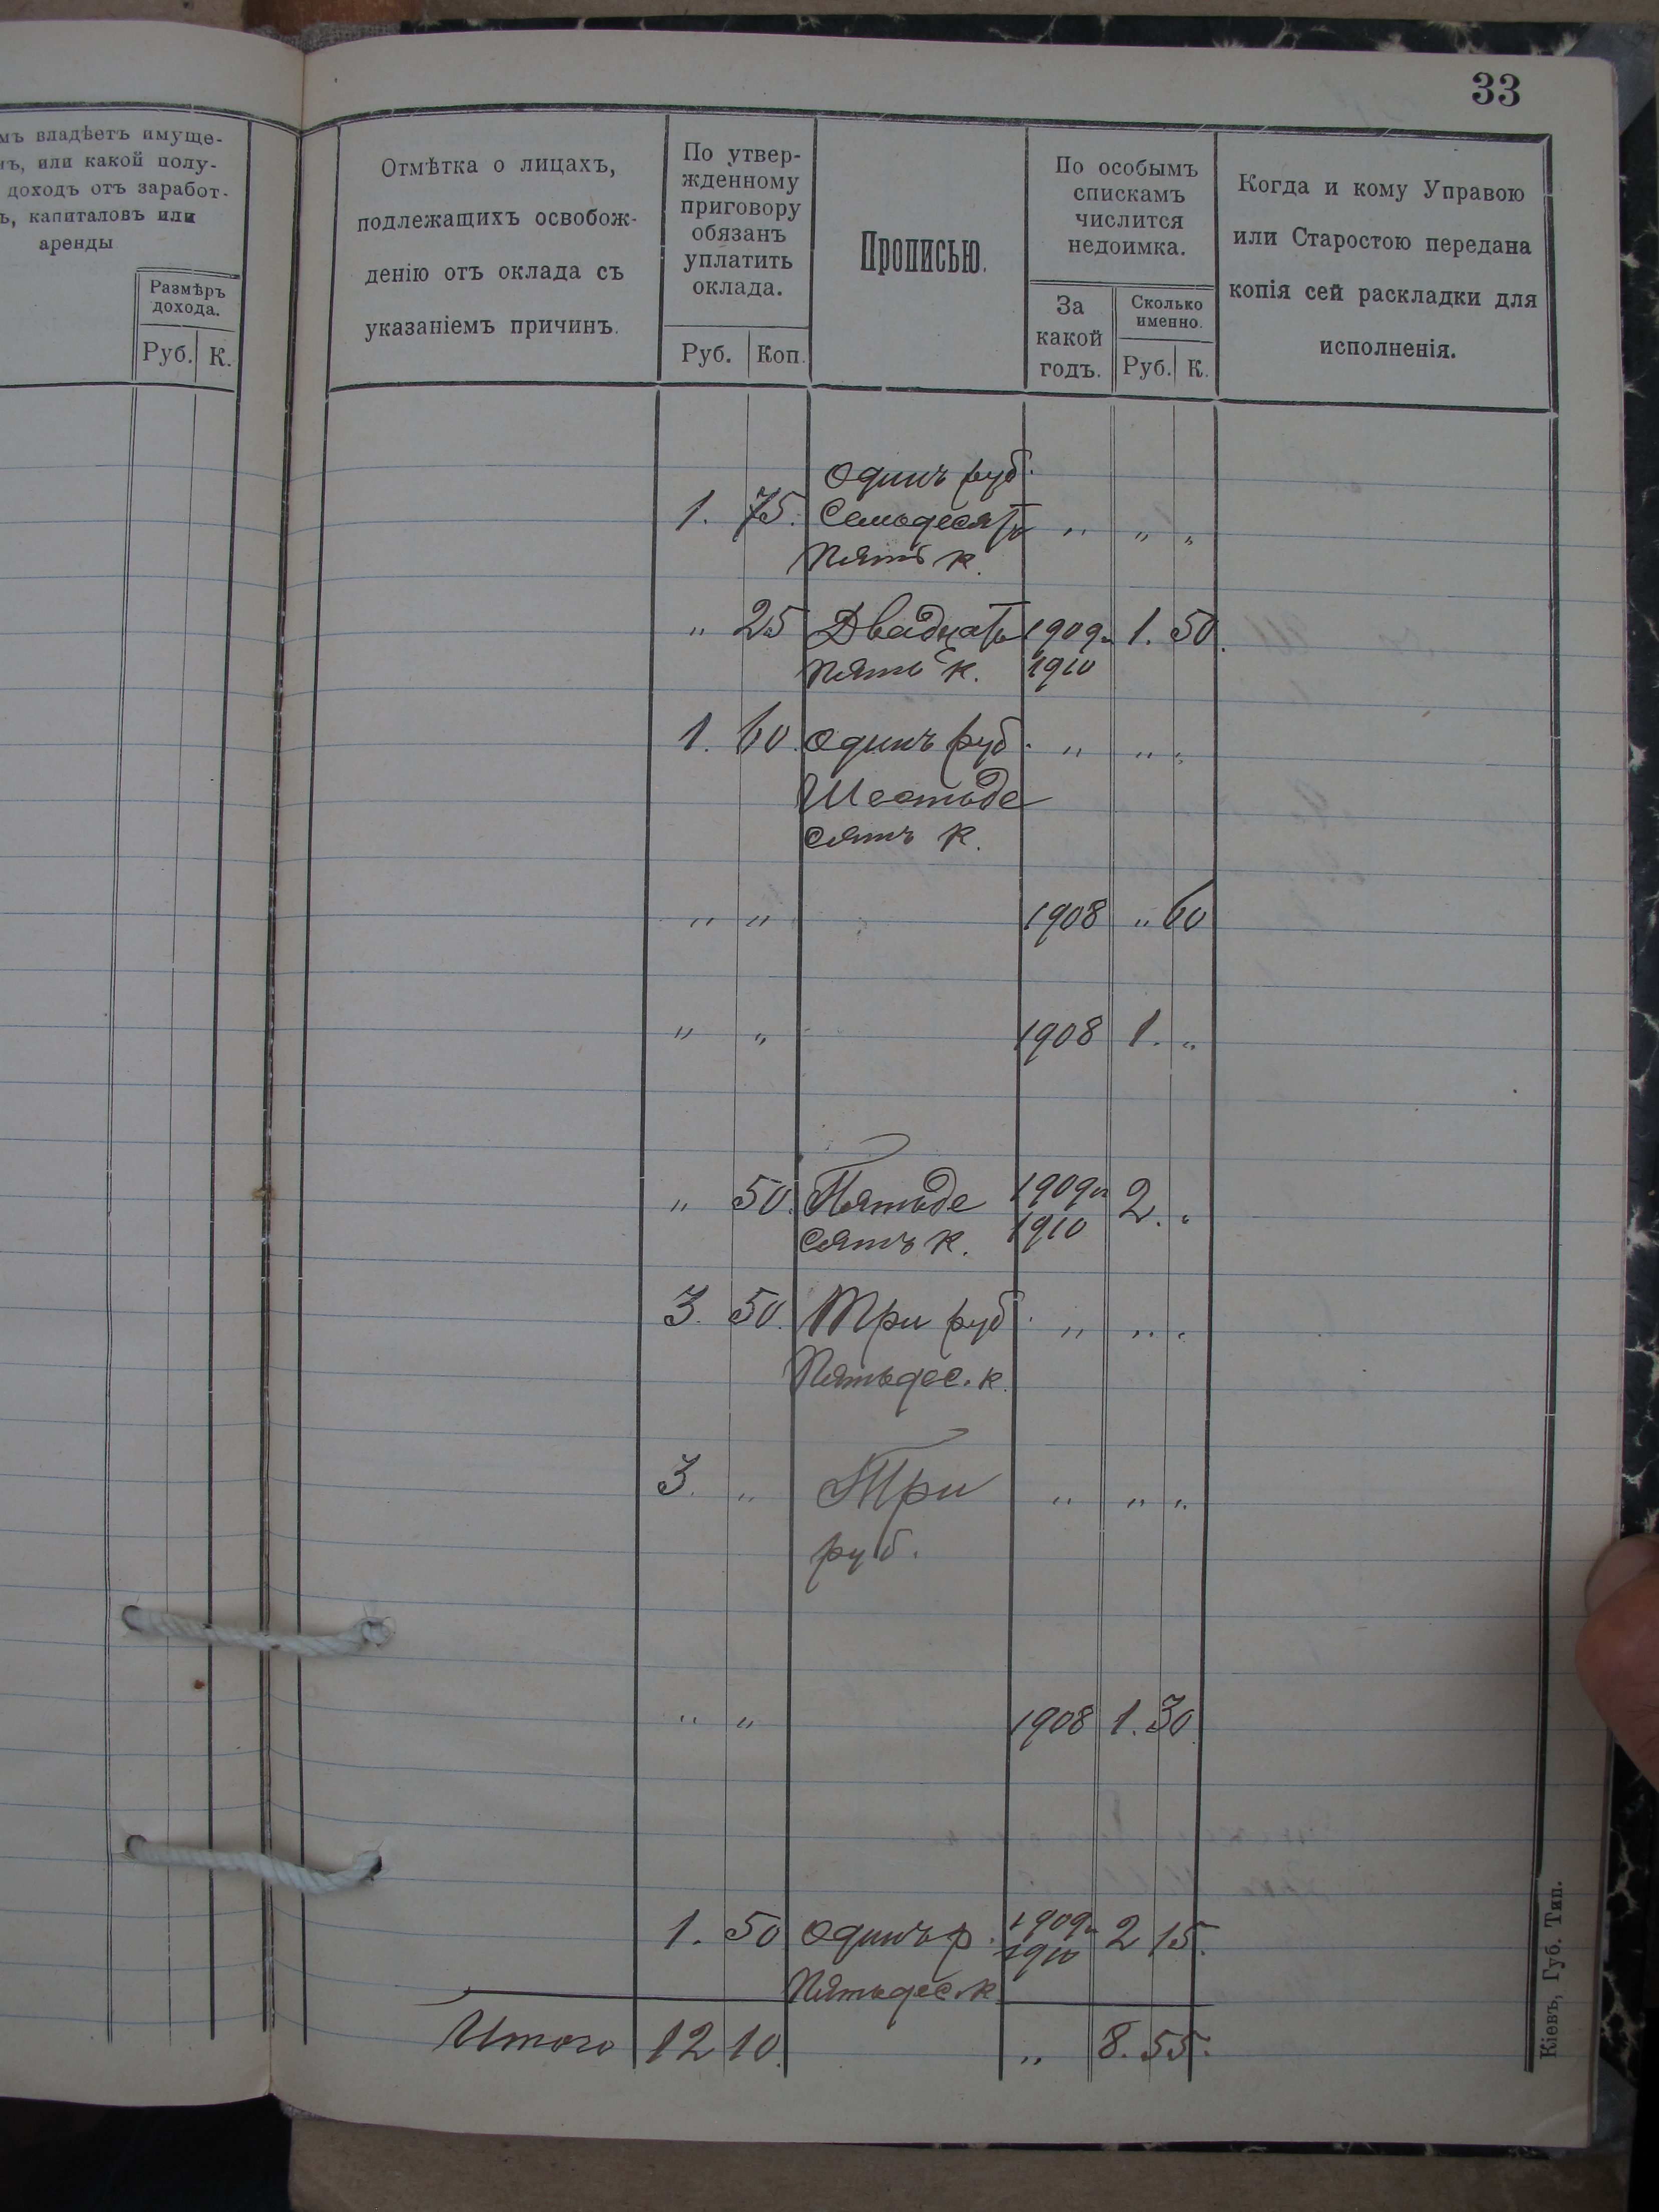 33
мъ владѣетъ имуще-
ъ, или какой полу-
доходъ отъ заработ-
ъ, капиталовъ или
аренды
Размѣръ
дохода.
Руб. К.
Отмѣтка о лицахъ,
подлежащихъ освобож-
денію отъ оклада съ
указаніемъ причинъ.
По утвер-
жденному
приговору
обязанъ
уплатить
оклада.
Руб. Коп.
Прописью.
По особымъ
спискамъ
числится
недоимка.
За
какой
годъ.
Сколько
именно.
Руб. К.
Когда и кому Управою
или Старостою передана
копія сей раскладки для
исполненія.
Одинъ руб.
1. 75. Семьдесятъ „ „ „
Пять к.
„ 25 Двадцать 1909 и 1. 50.
Пять к. 1910
1. 60. Одинъ руб. „ „ „
Шестьде
сятъ к.
„ „ 1908 „ 60
„ „ 1908 1. „
„ 50. Пятьде 1909 и 2. „
сятъ к. 1910
3. 50. Три руб. „ „ „
Пятьдес. к.
3. „ Три „ „ „
руб.
„ „ 1908 1. 30.
1. 50 Одинъ р. 1909 и 2 15.
Пятьдес. к. 1910
Итого 12 10. „ 8. 55.
Кіевъ, Губ. Тип.